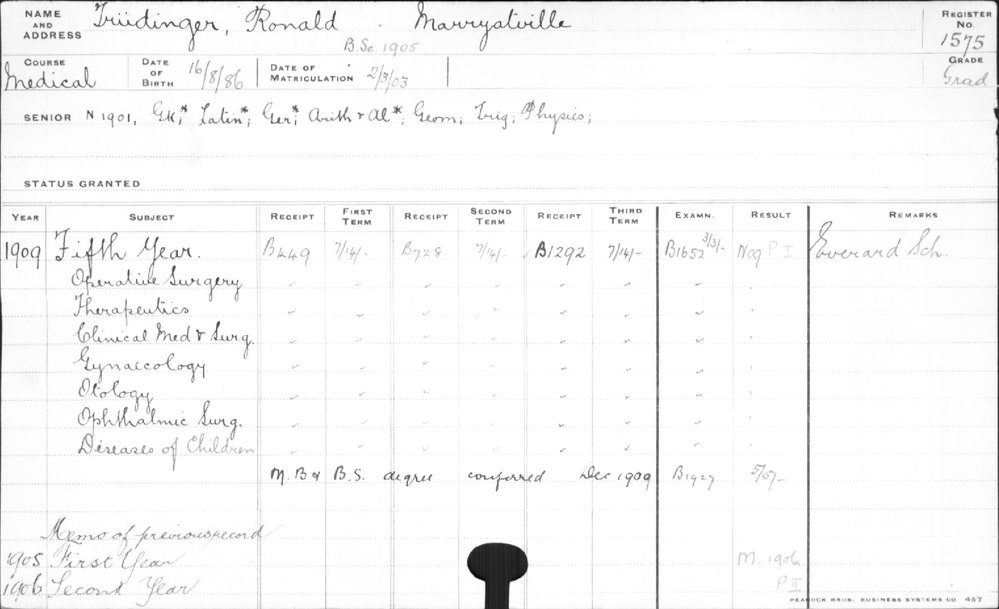 NAME AND ADDRESS Trüdinger, Ronald Marryatville REGISTER No. 1575
B.Sc 1905
COURSE Medical DATE OF BIRTH 16/8/86 DATE OF MATRICULATION 2/3/03 GRADE Grad
SENIOR N 1901, Gk*; Latin*; Ger*; Arith & Al*; Geom; Trig; Physics;
STATUS GRANTED
YEAR SUBJECT RECEIPT FIRST TERM RECEIPT SECOND TERM RECEIPT THIRD TERM EXAMN. RESULT REMARKS
1909 Fifth Year. B449 7/14/- B728 7/14/- B1292 7/14/- B1652 3/3/- Nog P I Everard Sch.
Operative Surgery " " " " " " " "
Therapeutics " " " " " " " "
Clinical Med & Surg. " " " " " " " "
Gynaecology " " " " " " " "
Otology " " " " " " " "
Ophthalmic Surg. " " " " " " " "
Diseases of Children " " " " " " " "
M.B & B.S. degree conferred Dec 1909 B1927 5/5/-
Memo of previous record
1905 First Year M. 1906
1906 Second Year P II
PEACOCK BROS. BUSINESS SYSTEMS CO 457